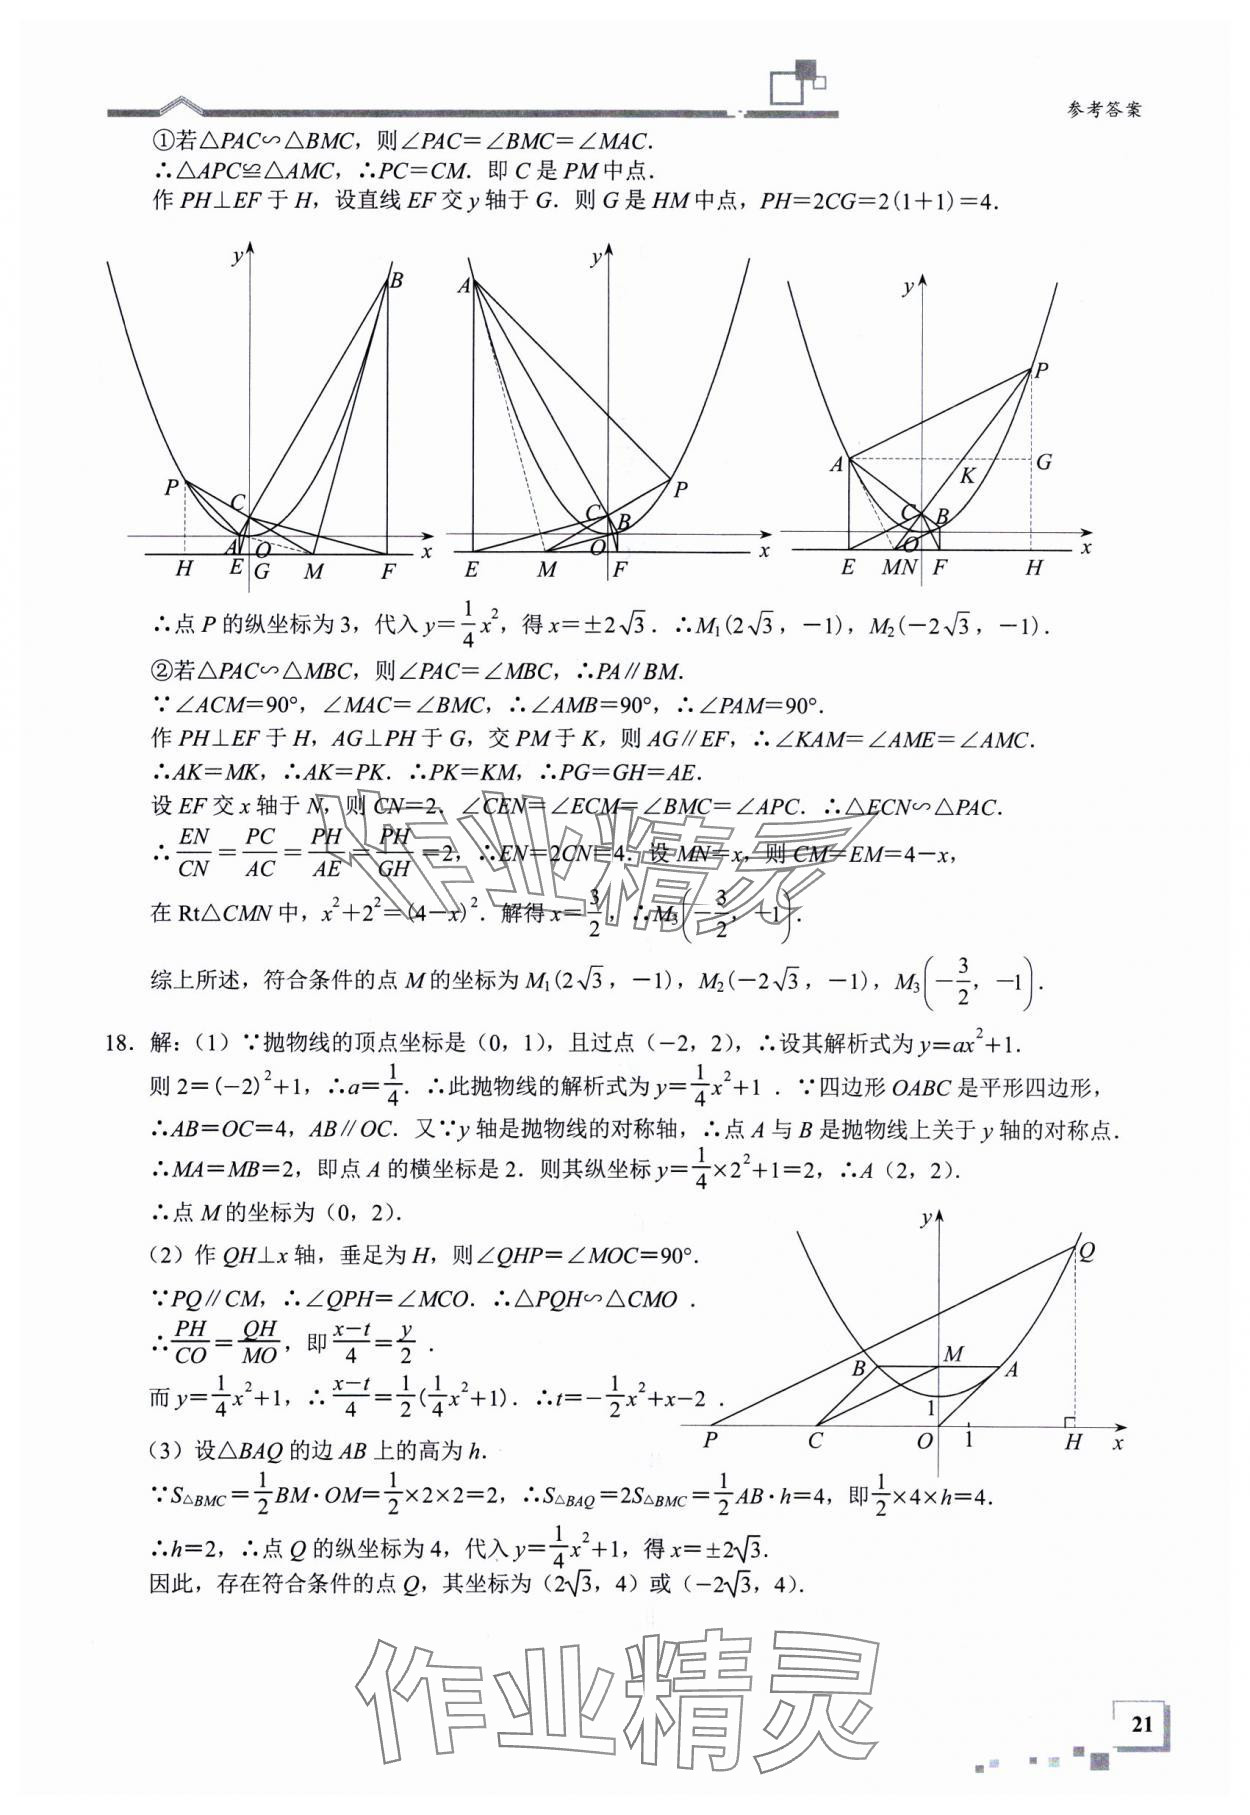 参考答案
①若△PAC∽△BMC，则∠PAC=∠BMC=∠MAC.
∴△APC≌△AMC，∴PC=CM. 即 C 是 PM 中点.
作 PH⊥EF 于 H，设直线 EF 交 y 轴于 G. 则 G 是 HM 中点，PH=2CG=2(1+1)=4.
y B P C A O x H E G M F
y A P C B O x E M F
y P A K G C B O x E M N F H
∴点 P 的纵坐标为 3，代入 y=1/4x²，得 x=±2√3. ∴M₁(2√3，-1)，M₂(-2√3，-1).
②若△PAC∽△MBC，则∠PAC=∠MBC，∴PA∥BM.
∵∠ACM=90°，∠MAC=∠BMC，∴∠AMB=90°，∴∠PAM=90°.
作 PH⊥EF 于 H，AG⊥PH 于 G，交 PM 于 K，则 AG∥EF，∴∠KAM=∠AME=∠AMC.
∴AK=MK，∴AK=PK. ∴PK=KM，∴PG=GH=AE.
设 EF 交 x 轴于 N，则 CN=2. ∠CEN=∠ECM=∠BMC=∠APC. ∴△ECN∽△PAC.
∴EN/CN=PC/AC=PH/AE=PH/GH=2，∴EN=2CN=4. 设 MN=x，则 CM=EM=4-x，
在 Rt△CMN 中，x²+2²=(4-x)². 解得 x=3/2，∴M₃(-3/2，-1).
综上所述，符合条件的点 M 的坐标为 M₁(2√3，-1)，M₂(-2√3，-1)，M₃(-3/2，-1).
18. 解：(1) ∵抛物线的顶点坐标是（0，1），且过点（-2，2），∴设其解析式为 y=ax²+1.
则 2=(-2)²+1，∴a=1/4. ∴此抛物线的解析式为 y=1/4x²+1 . ∵四边形 OABC 是平行四边形，
∴AB=OC=4，AB∥OC. 又∵y 轴是抛物线的对称轴，∴点 A 与 B 是抛物线上关于 y 轴的对称点.
∴MA=MB=2，即点 A 的横坐标是 2. 则其纵坐标 y=1/4×2²+1=2，∴A（2，2）.
∴点 M 的坐标为（0，2）.
（2）作 QH⊥x 轴，垂足为 H，则∠QHP=∠MOC=90°.
∵PQ∥CM，∴∠QPH=∠MCO. ∴△PQH∽△CMO .
∴PH/CO=QH/MO，即 x-t/4=y/2 .
而 y=1/4x²+1，∴x-t/4=1/2(1/4x²+1). ∴t=-1/2x²+x-2 .
y Q B M A 1 P C O 1 H x
（3）设△BAQ 的边 AB 上的高为 h.
∵S△BMC=1/2BM·OM=1/2×2×2=2，∴S△BAQ=2S△BMC=1/2AB·h=4，即1/2×4×h=4.
∴h=2，∴点 Q 的纵坐标为 4，代入 y=1/4x²+1，得 x=±2√3.
因此，存在符合条件的点 Q，其坐标为（2√3，4）或（-2√3，4）.
作业精灵
作业精灵
21